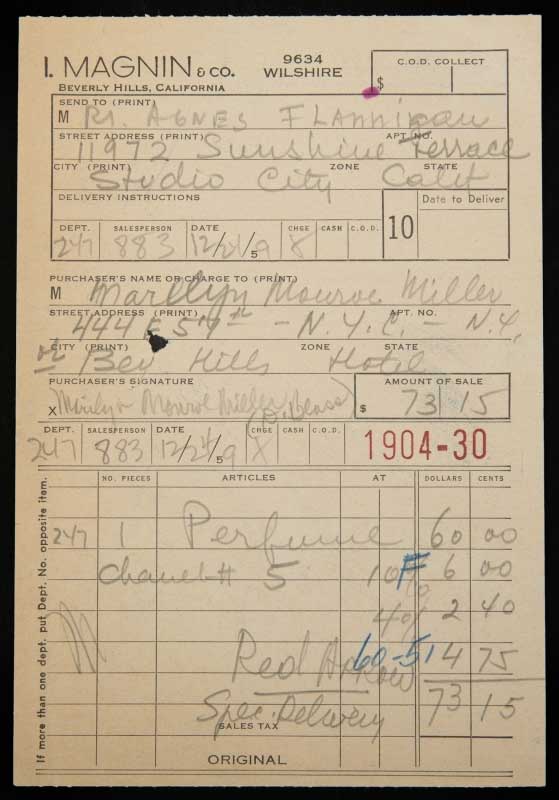 I. MAGNIN & CO. 9634 WILSHIRE
BEVERLY HILLS, CALIFORNIA
C.O.D. COLLECT
$
SEND TO (PRINT)
M Agnes Flannigan
STREET ADDRESS (PRINT) APT. NO.
11972 Sunshine Terrace
CITY (PRINT) ZONE STATE
Studio City Calif
DELIVERY INSTRUCTIONS
10
Date to Deliver
DEPT. SALESPERSON DATE CHGE CASH C.O.D.
247 883 12/21/59
PURCHASER'S NAME OR CHARGE TO (PRINT)
M Marilyn Monroe Miller
STREET ADDRESS (PRINT) APT. NO.
444 E 57th - N.Y.C. - N.Y.
CITY (PRINT) ZONE STATE
Bev Hills Hotel
PURCHASER'S SIGNATURE
X Marilyn Monroe Miller
AMOUNT OF SALE
$ 73 15
DEPT. SALESPERSON DATE CHGE CASH C.O.D.
247 883 12/21/59 X
1904-30
NO. PIECES ARTICLES AT DOLLARS CENTS
247 1 Perfume 60 00
Chanel # 5 10% F 6 00
4% 2 40
60-51 4 75
Red Arrow
Spec. Delivery 73 15
SALES TAX
ORIGINAL
If more than one dept. put Dept. No. opposite item.